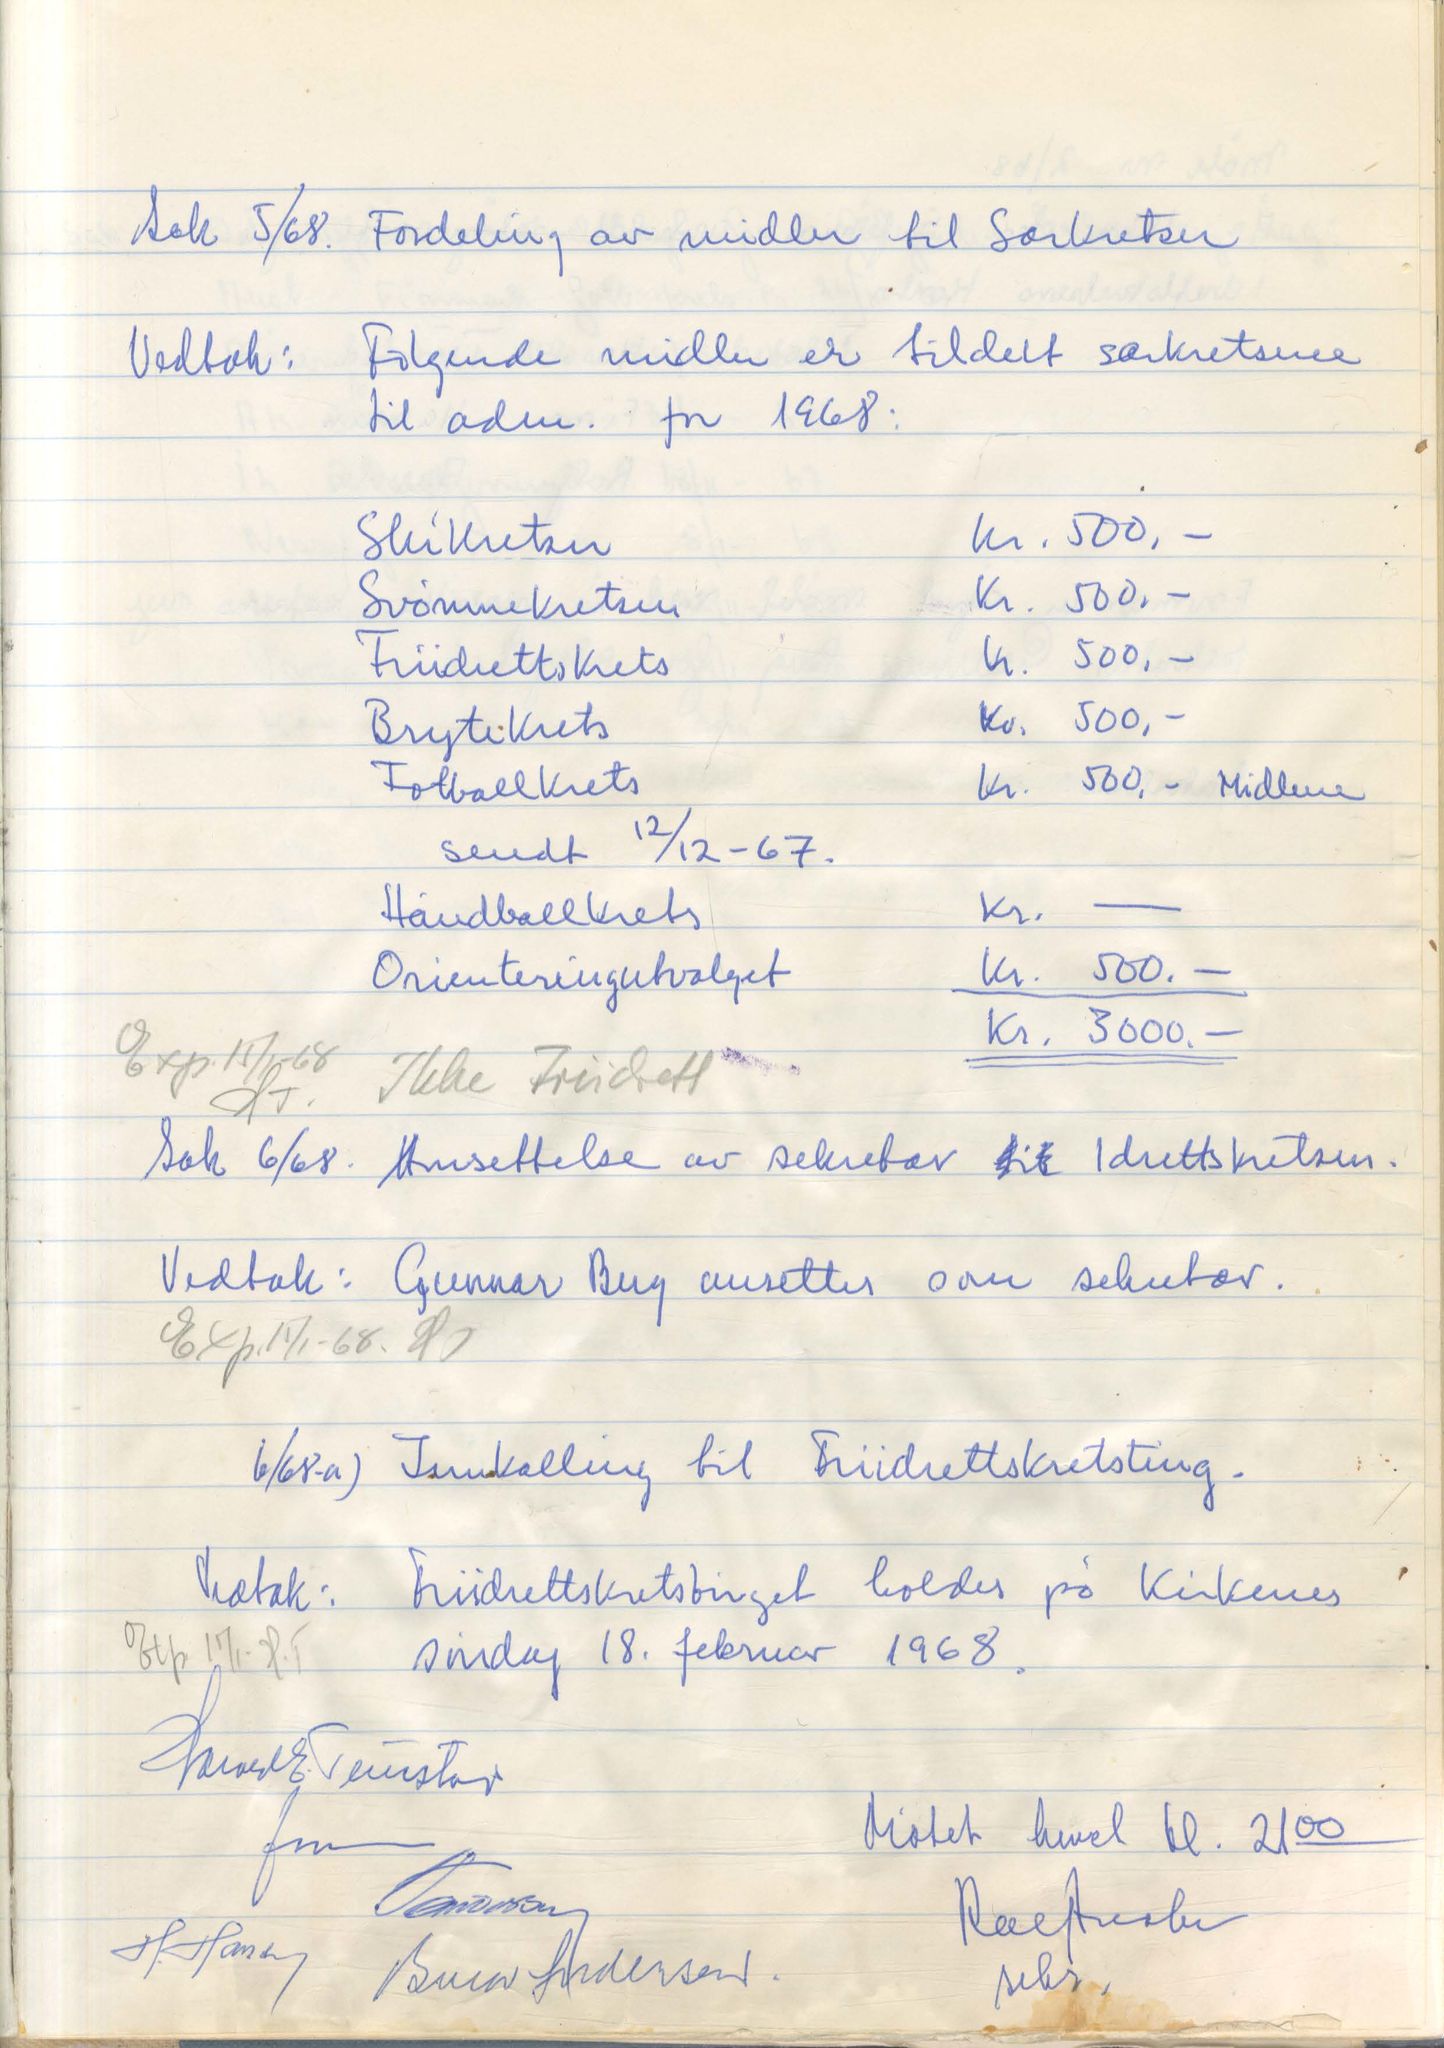 Sak 5/68. Fordeling av midler til Særkretser
Vedtak: Følgende midler er tildelt særkretsene
til adm. for 1968:
Skikretsen Kr. 500,-
Svømmekretsen Kr. 500,-
Friidrettskrets Kr. 500,-
Brytekrets Kr. 500,-
Fotballkrets Kr. 500,- Midlene
sendt 12/12-67.
Håndballkrets Kr. —
Orienteringutvalget Kr. 500.-
Kr. 3000.-
Exp. 15/1-68 Ikke Friidrett
HT.
Sak 6/68. Ansettelse av sekretær til Idrettskretsen.
Vedtak: Gunnar Berg ansettes som sekretær.
Exp. 15/1-68. HT
6/68-a) Innkalling til Friidrettskretsting.
Vedtak: Friidrettskretstinget holdes på Kirkenes
Exp 17/1- H.T søndag 18. februar 1968.
form
Møtet hevet kl. 2100
H. Hansen
Andersen.
sekr.